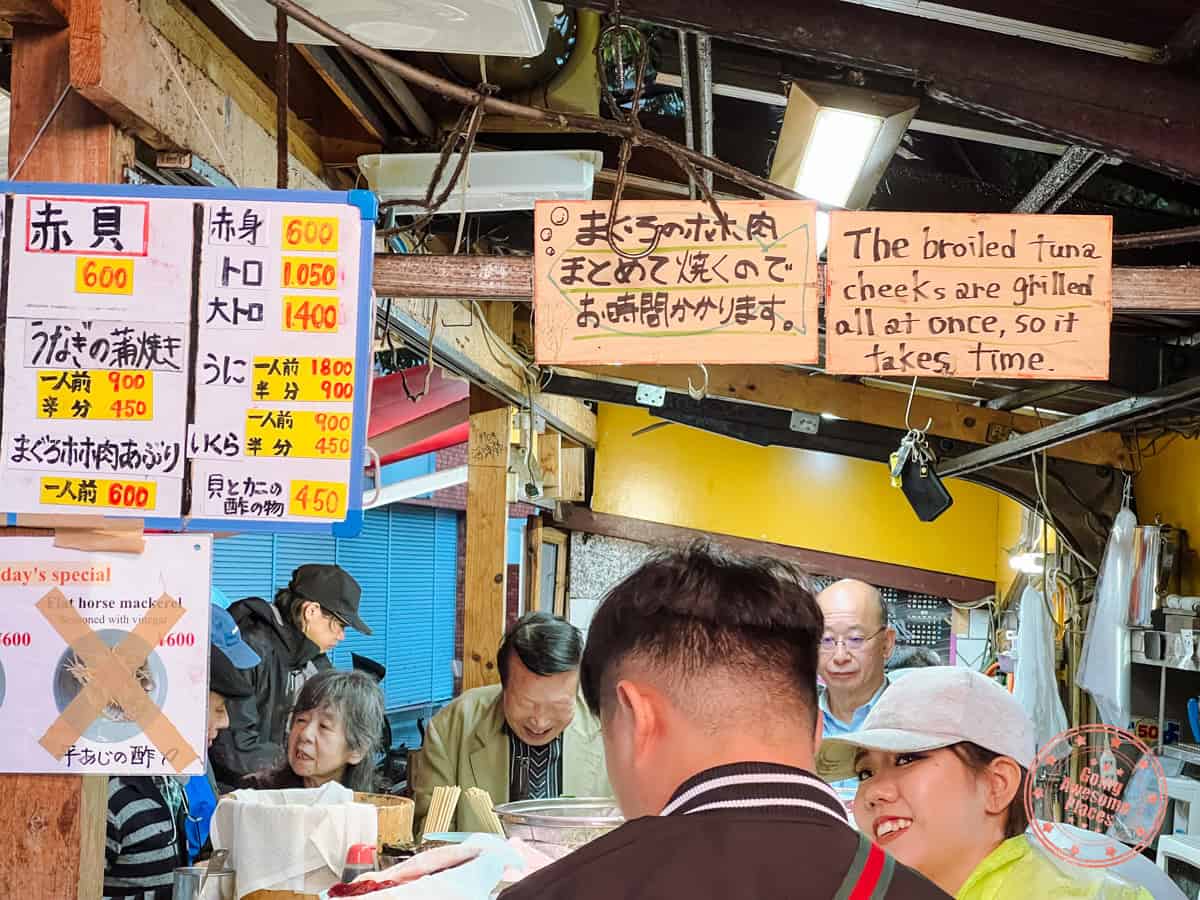 赤貝
600
うなぎの蒲焼き
一人前 900
半分 450
まぐろホホ肉あぶり
一人前 600
赤身 600
トロ 1,050
大トロ 1400
うに 一人前 1800
半分 900
いくら 一人前 900
半分 450
貝とカニの
酢の物 450
まぐろのホホ肉
まとめて焼くので
お時間かかります。
The broiled tuna
cheeks are grilled
all at once, so it
takes time.
day's special
Flat horse mackerel
Seasoned with vinegar
¥600
¥600
平あじの酢
50
Going
Awesome
Places